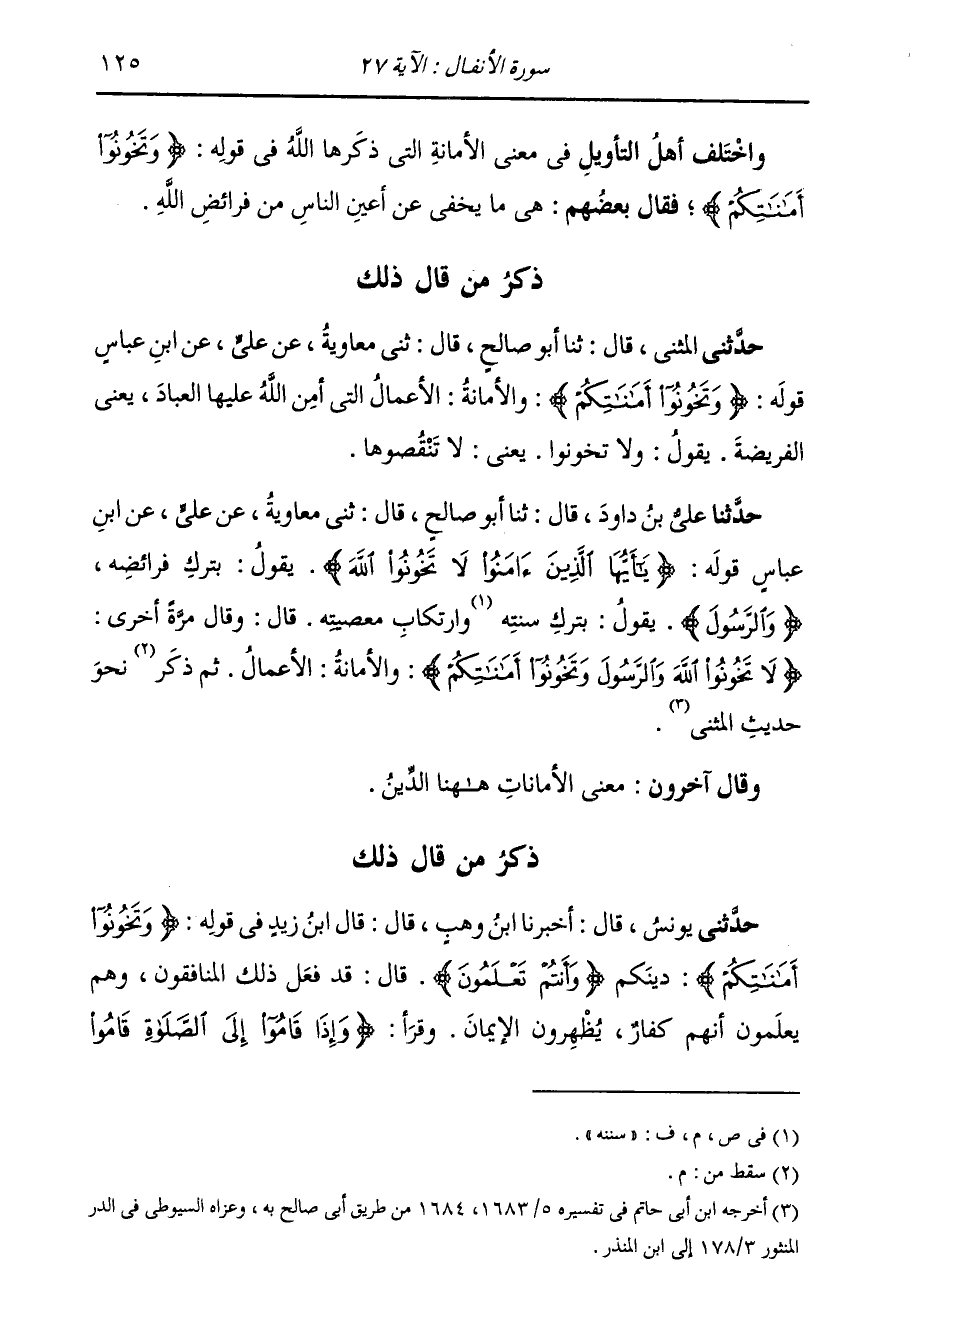 سورة الأنفال : الآية ٢٧ ١٢٥
واخْتَلف أهلُ التأويلِ فى معنى الأمانةِ التى ذكَرها اللَّهُ فى قولِه : ﴿ وَتَخُونُوٓا۟
أَمَـٰنَـٰتِكُمْ ﴾ ؛ فقال بعضُهم : هى ما يخفى عن أعينِ الناسِ من فرائضِ اللَّهِ .
ذكرُ من قال ذلك
حدَّثنى المثنى ، قال : ثنا أبو صالحٍ ، قال : ثنى معاويةُ ، عن علىٍّ ، عن ابنِ عباسٍ
قولَه : ﴿ وَتَخُونُوٓا۟ أَمَـٰنَـٰتِكُمْ ﴾ : والأمانةُ : الأعمالُ التى أمِن اللَّهُ عليها العبادَ ، يعنى
الفريضةَ . يقولُ : ولا تخونوا . يعنى : لا تَنْقُصوها .
حدَّثنا علىُّ بنُ داودَ ، قال : ثنا أبو صالحٍ ، قال : ثنى معاويةُ ، عن علىٍّ ، عن ابنِ
عباسٍ قولَه : ﴿ يَـٰٓأَيُّهَا ٱلَّذِينَ ءَامَنُوا۟ لَا تَخُونُوا۟ ٱللَّهَ ﴾ . يقولُ : بتركِ فرائضِه ،
﴿ وَٱلرَّسُولَ ﴾ . يقولُ : بتركِ سنتِه (١) وارتكابِ معصيتِه . قال : وقال مرَّةً أخرى :
﴿ لَا تَخُونُوا۟ ٱللَّهَ وَٱلرَّسُولَ وَتَخُونُوٓا۟ أَمَـٰنَـٰتِكُمْ ﴾ : والأمانةُ : الأعمالُ . ثم ذكَر (٢) نحوَ
حديثِ المثنى (٣) .
وقال آخرون : معنى الأماناتِ هـٰهنا الدِّينُ .
ذكرُ من قال ذلك
حدَّثنى يونسُ ، قال : أخبرنا ابنُ وهبٍ ، قال : قال ابنُ زيدٍ فى قولِه : ﴿ وَتَخُونُوٓا۟
أَمَـٰنَـٰتِكُمْ ﴾ : دينَكم ﴿ وَأَنتُمْ تَعْـلَمُونَ ﴾ . قال : قد فعَل ذلك المنافقون ، وهم
يعلَمون أنهم كفارٌ ، يُظْهِرون الإيمانَ . وقرَأ : ﴿ وَإِذَا قَامُوٓا۟ إِلَى ٱلصَّلَوٰةِ قَامُوا۟
(١) فى ص ، م ، ف : « سننه » .
(٢) سقط من : م .
(٣) أخرجه ابن أبى حاتم فى تفسيره ٥/ ١٦٨٣، ١٦٨٤ من طريق أبى صالح به ، وعزاه السيوطى فى الدر
المنثور ٣/ ١٧٨ إلى ابن المنذر .